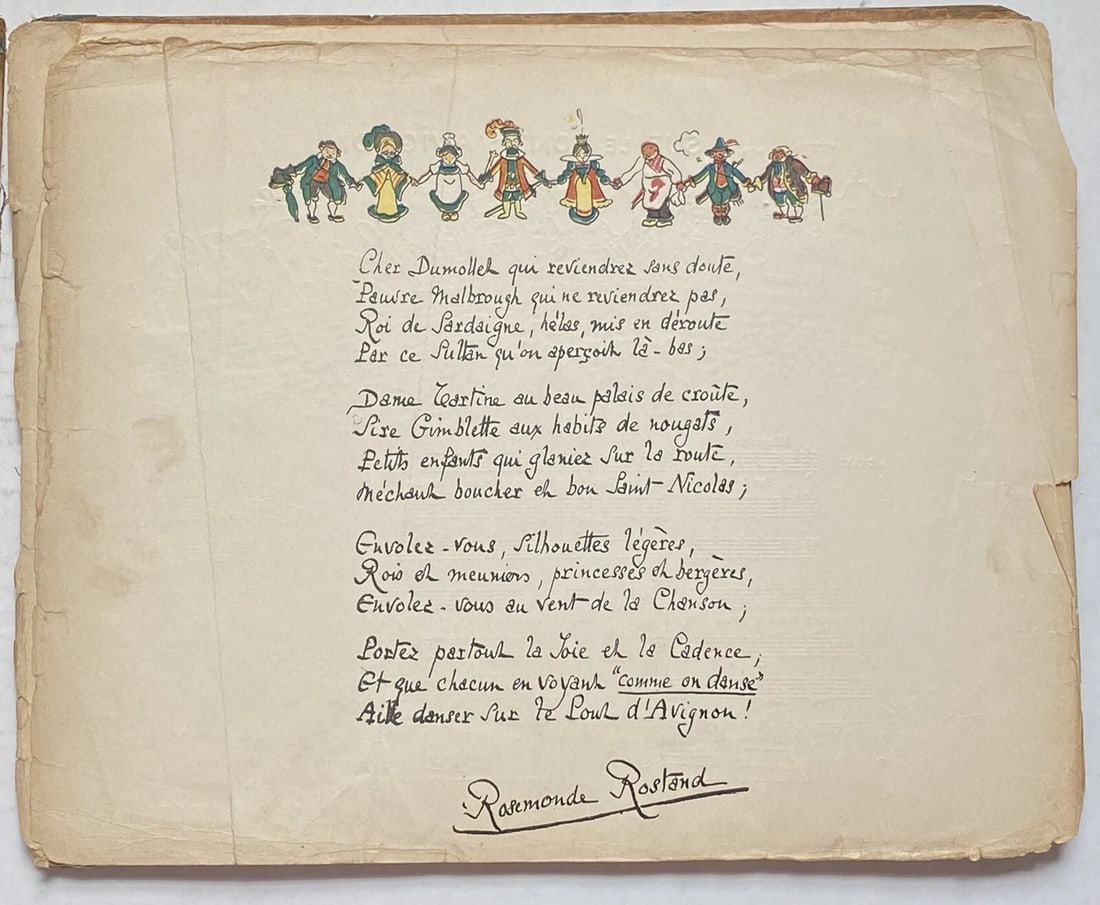 Cher Dumollet qui reviendrez sans doute,
Pauvre Malbrough qui ne reviendrez pas,
Roi de Sardaigne, hélas, mis en déroute
Par ce Sultan qu'on aperçoit là-bas ;
Dame Tartine au beau palais de croûte,
Sire Gimblette aux habits de nougats,
Petits enfants qui glaniez sur la route,
Méchant boucher et bon Saint-Nicolas ;
Envolez-vous, silhouettes légères,
Rois et meuniers, princesses et bergères,
Envolez-vous au vent de la Chanson ;
Portez partout la Joie et la Cadence,
Et que chacun en voyant "comme on danse"
Aille danser sur le Pont d'Avignon !
Rosemonde Rostand